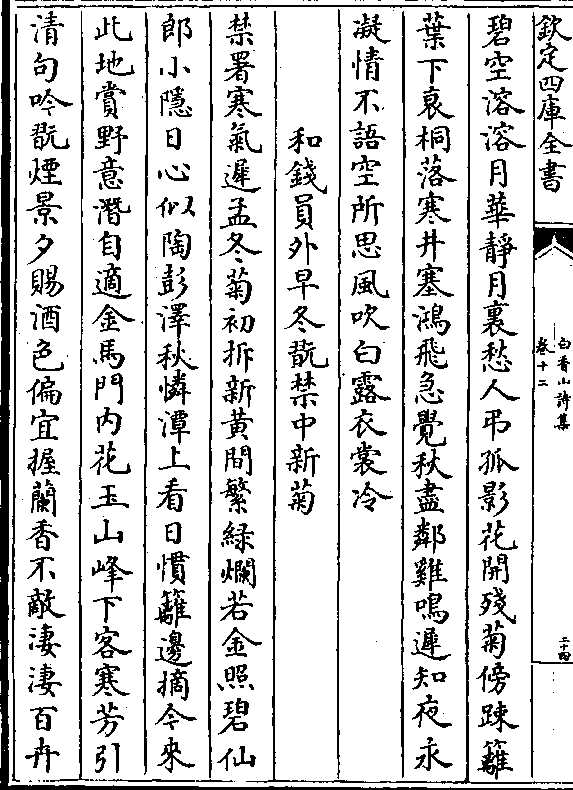 欽定四庫全書
白香山詩集
卷十二
二十四
碧空溶溶月華靜月裏愁人弔孤影花開殘菊傍踈籬
葉下衰桐落寒井塞鴻飛急覺秋盡鄰雞鳴遲知夜永
凝情不語空所思風吹白露衣裳冷
和錢員外早冬翫禁中新菊
禁署寒氣遲孟冬菊初拆新黃間繁緑爛若金照碧仙
郎小隱日心似陶彭澤秋憐潭上看日慣籬邊摘今來
此地賞野意潛自適金馬門内花玉山峰下客寒芳引
清句吟翫煙景夕賜酒色偏宜握蘭香不敵淒淒百卉